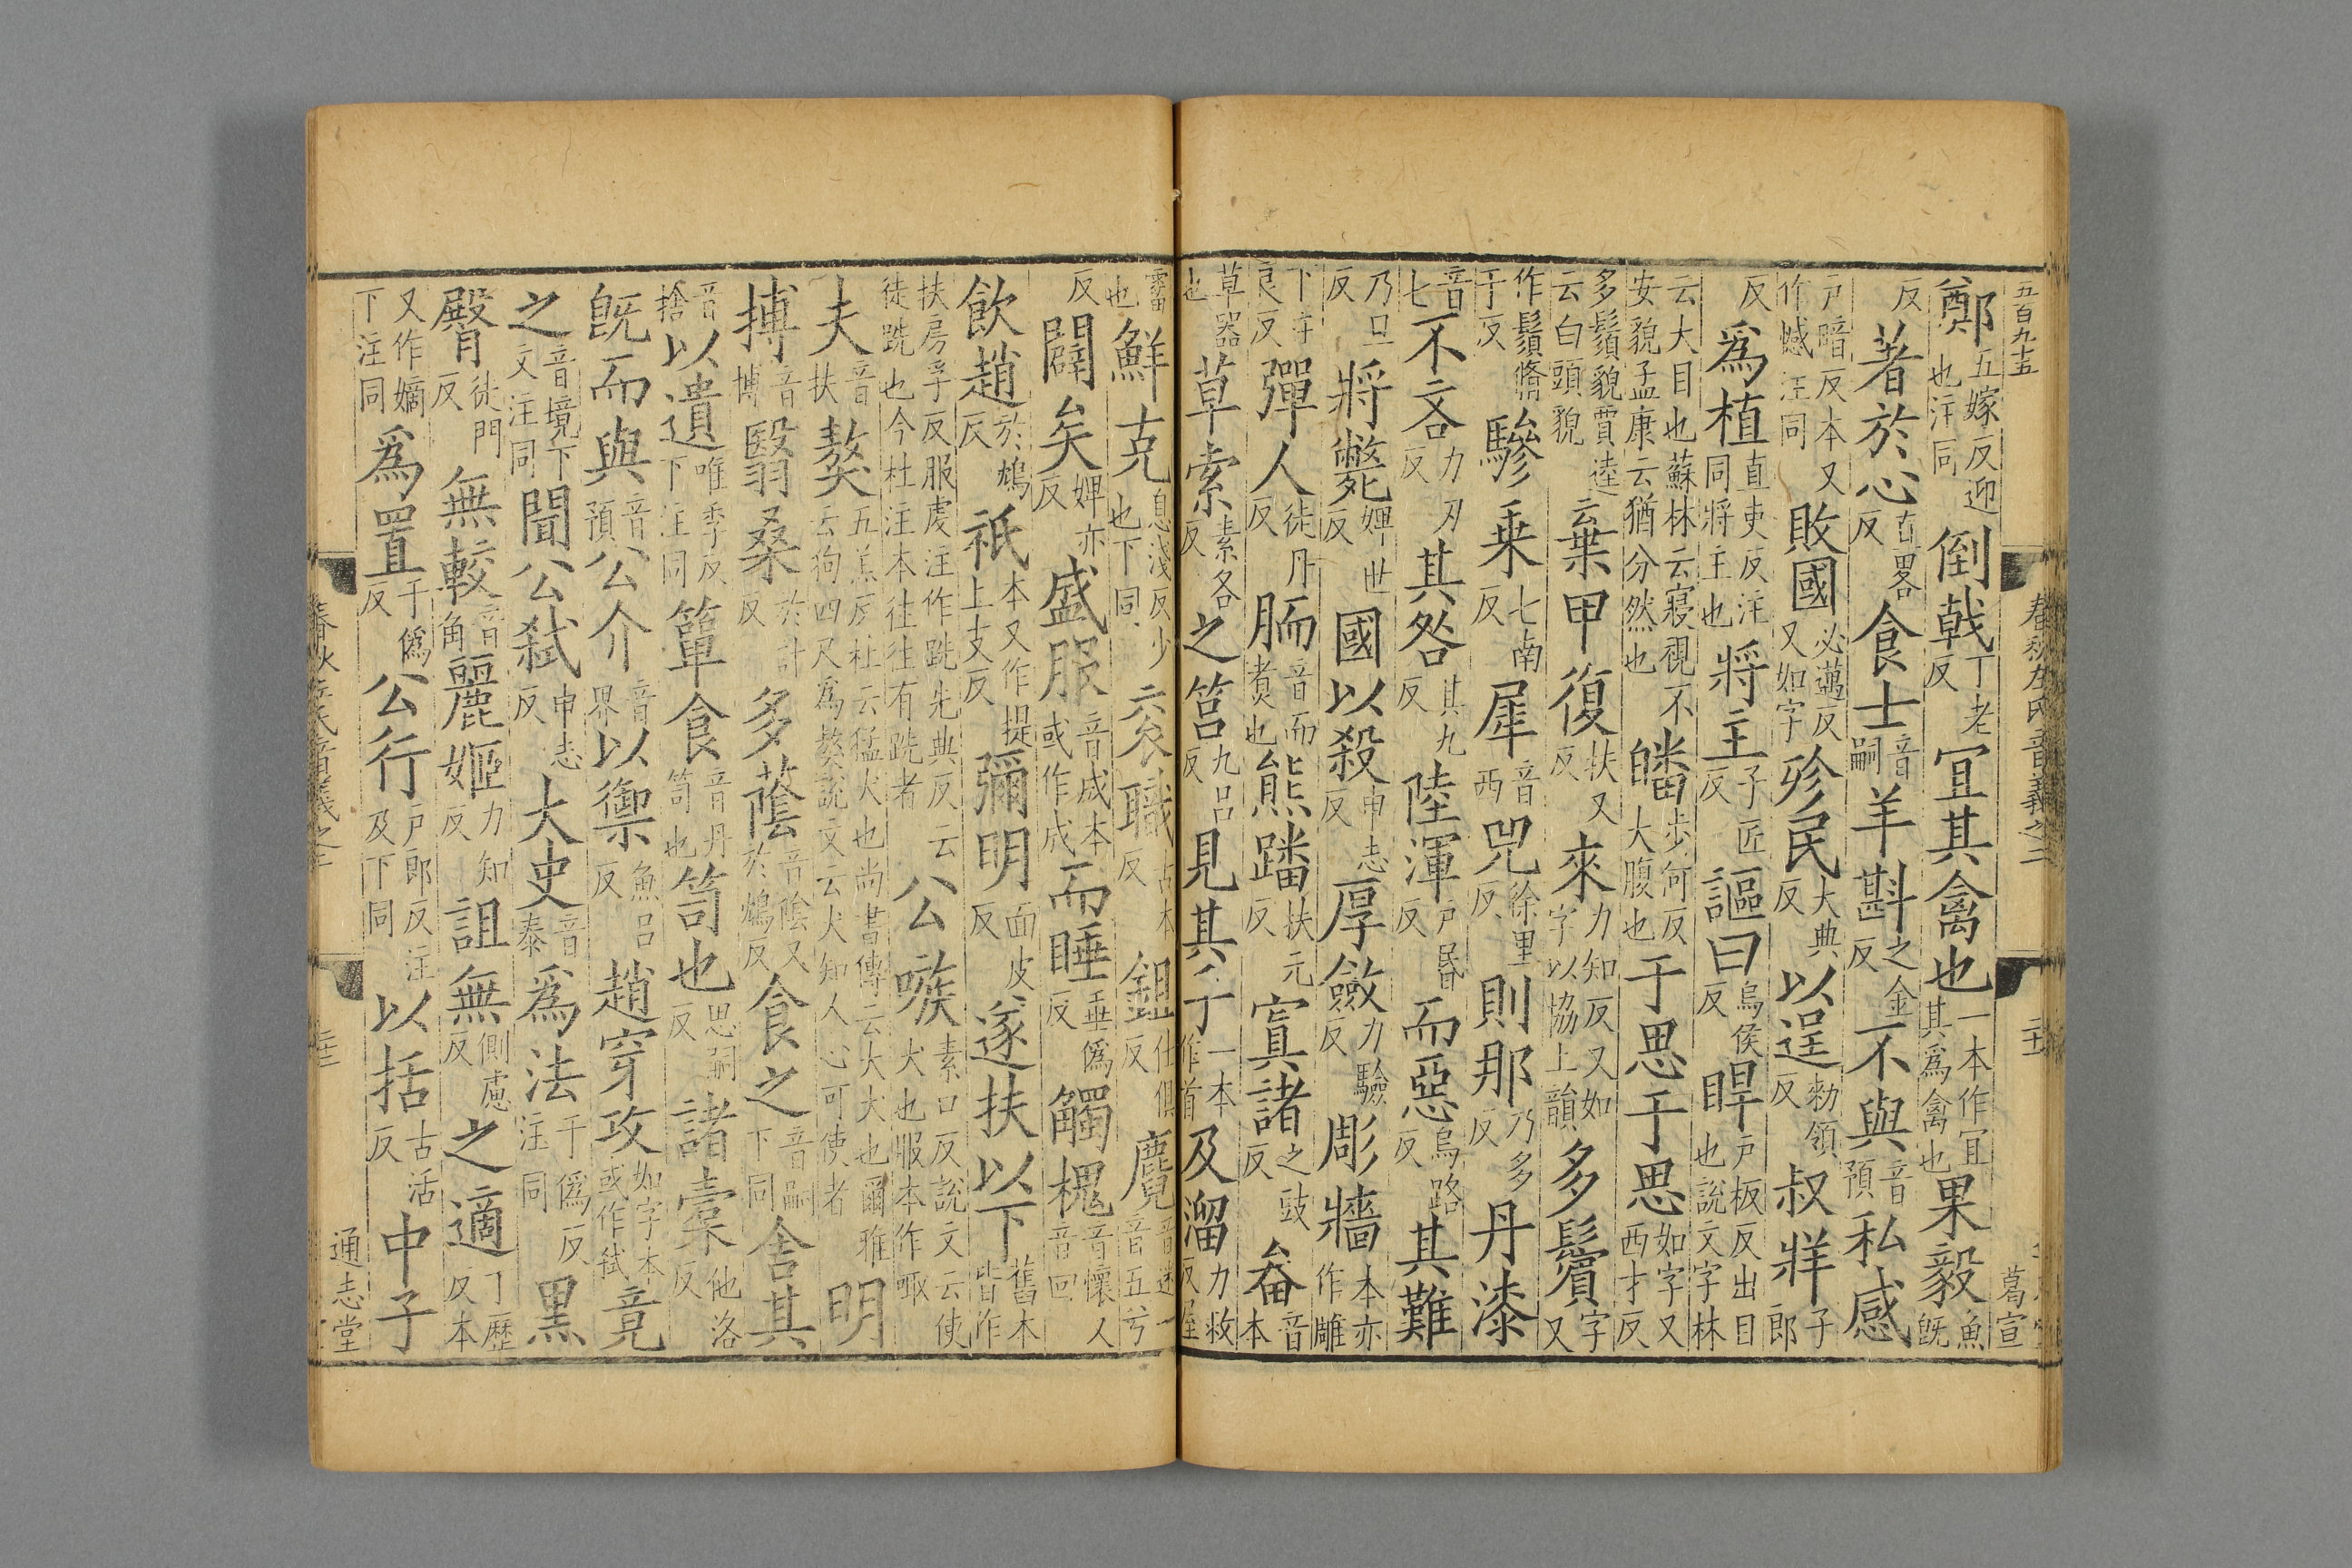 五百九十五
春秋左氏音義之二
葛宣
鄭五嫁反迎也注同倒戟丁老反宜其禽也一本作宜其為禽也果毅魚旣
反著於心直畧反食士音嗣羊斟之金反不與音預私感
戶暗反本又作憾注同敗國必邁反又如字殄民大典反以逞勑領反叔牂子郎
反為植直吏反注同將主也將主子匠反謳曰烏侯反睅戶板反出目也說文字林
云大目也蘇林云寢視不安貌孟康云猶分然也皤步何反大腹也于思于思如字又西才反
多鬚貌賈逵云白頭貌云棄甲復扶又反來力知反又如字以協上韻多鬢字又
作鬚脩于反驂乗七南反犀音西兕徐里反則那乃多反丹漆
音七不吝力刃反其咎其九反陸渾戶昬反而惡烏路反其難
乃旦反將斃婢世反國以殺申志反厚斂力驗反彫牆本亦作雕
下字良反彈人徒丹反胹音而煑也熊蹯扶元反寘諸之豉反畚音本
草器也草索素各反之筥九呂反見其手一本作首及溜力救反屋
霤也鮮克息淺反少也下同衮職古本反鉏仕俱反麑音迷一音五兮
反闢矣婢亦反盛服音成本或作成而睡垂僞反觸槐音懷人音回
飲趙於鴆反祇本又作提上支反彌明面皮反遂扶以下舊本皆作
扶房孚反服虔注作跣先典反云徒跣也今杜注本往往有跣者公嗾素口反說文云使犬也服本作㖩
夫音扶獒五羔反杜云猛犬也尚書傳云大犬也爾雅云狗四尺為獒說文云犬知人心可使者明
搏音博翳桑於計反多蔭音陰又於鴆反食之音嗣下同舍其
音捨以遺唯季反下注同簞食音丹笥也笥也思嗣反諸橐他洛反
旣而與音預公介音界以禦魚呂反趙穿攻如字本或作弑竟
之音境下文注同聞公弑申志反大史音泰為法于僞反注同黑
臀徒門反無較音角麗姬力知反詛無側慮反之適丁歷反本
又作嫡下注同為置于僞反公行戶郎反注及下同以括古活反中子
通志堂